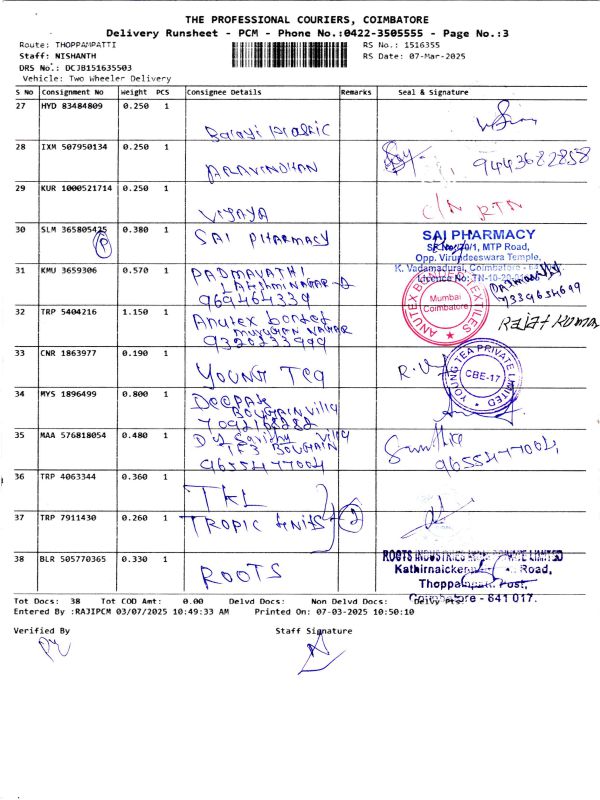 THE PROFESSIONAL COURIERS, COIMBATORE
Delivery Runsheet - PCM - Phone No.:0422-3505555 - Page No.:3
Route: THOPPAMPATTI RS No.: 1516355
Staff: NISHANTH RS Date: 07-Mar-2025
DRS No.: DCJB151635503
Vehicle: Two Wheeler Delivery
S No Consignment No Weight PCS Consignee Details Remarks Seal & Signature
27 HYD 83484809 0.250 1
28 IXM 507950134 0.250 1 ARAVINDHAN 9443682858
29 KUR 1000521714 0.250 1 VIJAYA C/N RTN
30 SLM 365805425 0.380 1 SAI PHARMACY
P
SAI PHARMACY
MTP Road,
Opp. Virundeeswara Temple,
K. Vadamadurai, Coimbatore
Licence No: TN-10-20
31 KMU 3659306 0.570 1 PADMAVATHI
LAKSHMI NAGAR
969464339
32 TRP 5404216 1.150 1 Anutex
MURUGAN NAGAR
9320233999
ANUTEX
TEXTILES
Mumbai
Coimbatore
Rajat Kumar
33 CNR 1863977 0.190 1 YOUNG TEA
YOUNG TEA PRIVATE LIMITED
CBE-17
34 MYS 1896499 0.800 1 DEEPAK
BOUGAINVILLA
7092168282
35 MAA 576818054 0.480 1
153 BOUGAIN
9655477004 9655477004
36 TRP 4063344 0.360 1 TKL
37 TRP 7911430 0.260 1 TROPIC KNITS 2
38 BLR 505770365 0.330 1 ROOTS
ROOTS INDUSTRIES PRIVATE LIMITED
Road,
Post,
Coimbatore - 641 017.
Tot Docs: 38 Tot COD Amt: 0.00 Delvd Docs: Non Delvd Docs: Delvy Pts:
Entered By :RAJIPCM 03/07/2025 10:49:33 AM Printed On: 07-03-2025 10:50:10
Verified By Staff Signature